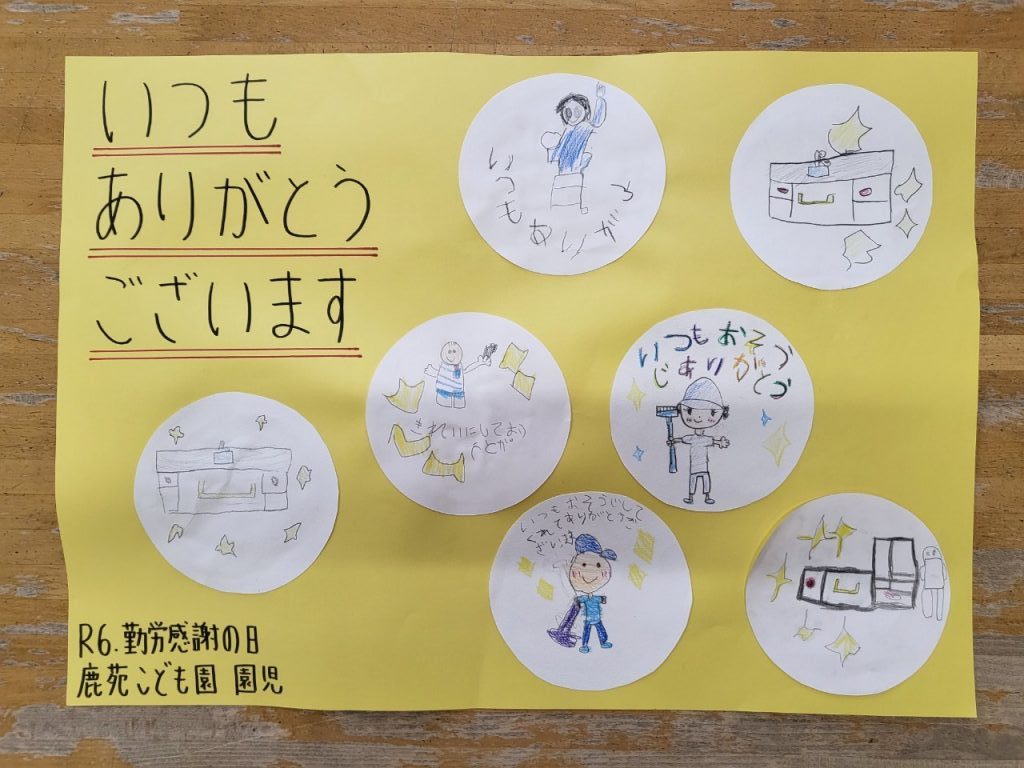 いつも
ありがとう
ございます
いつもありがとう
いつもおそう
じありがとう
きれいにしており
いつもおそうじして
くれてありがとうご
ざいます
R6.勤労感謝の日
鹿苑こども園 園児